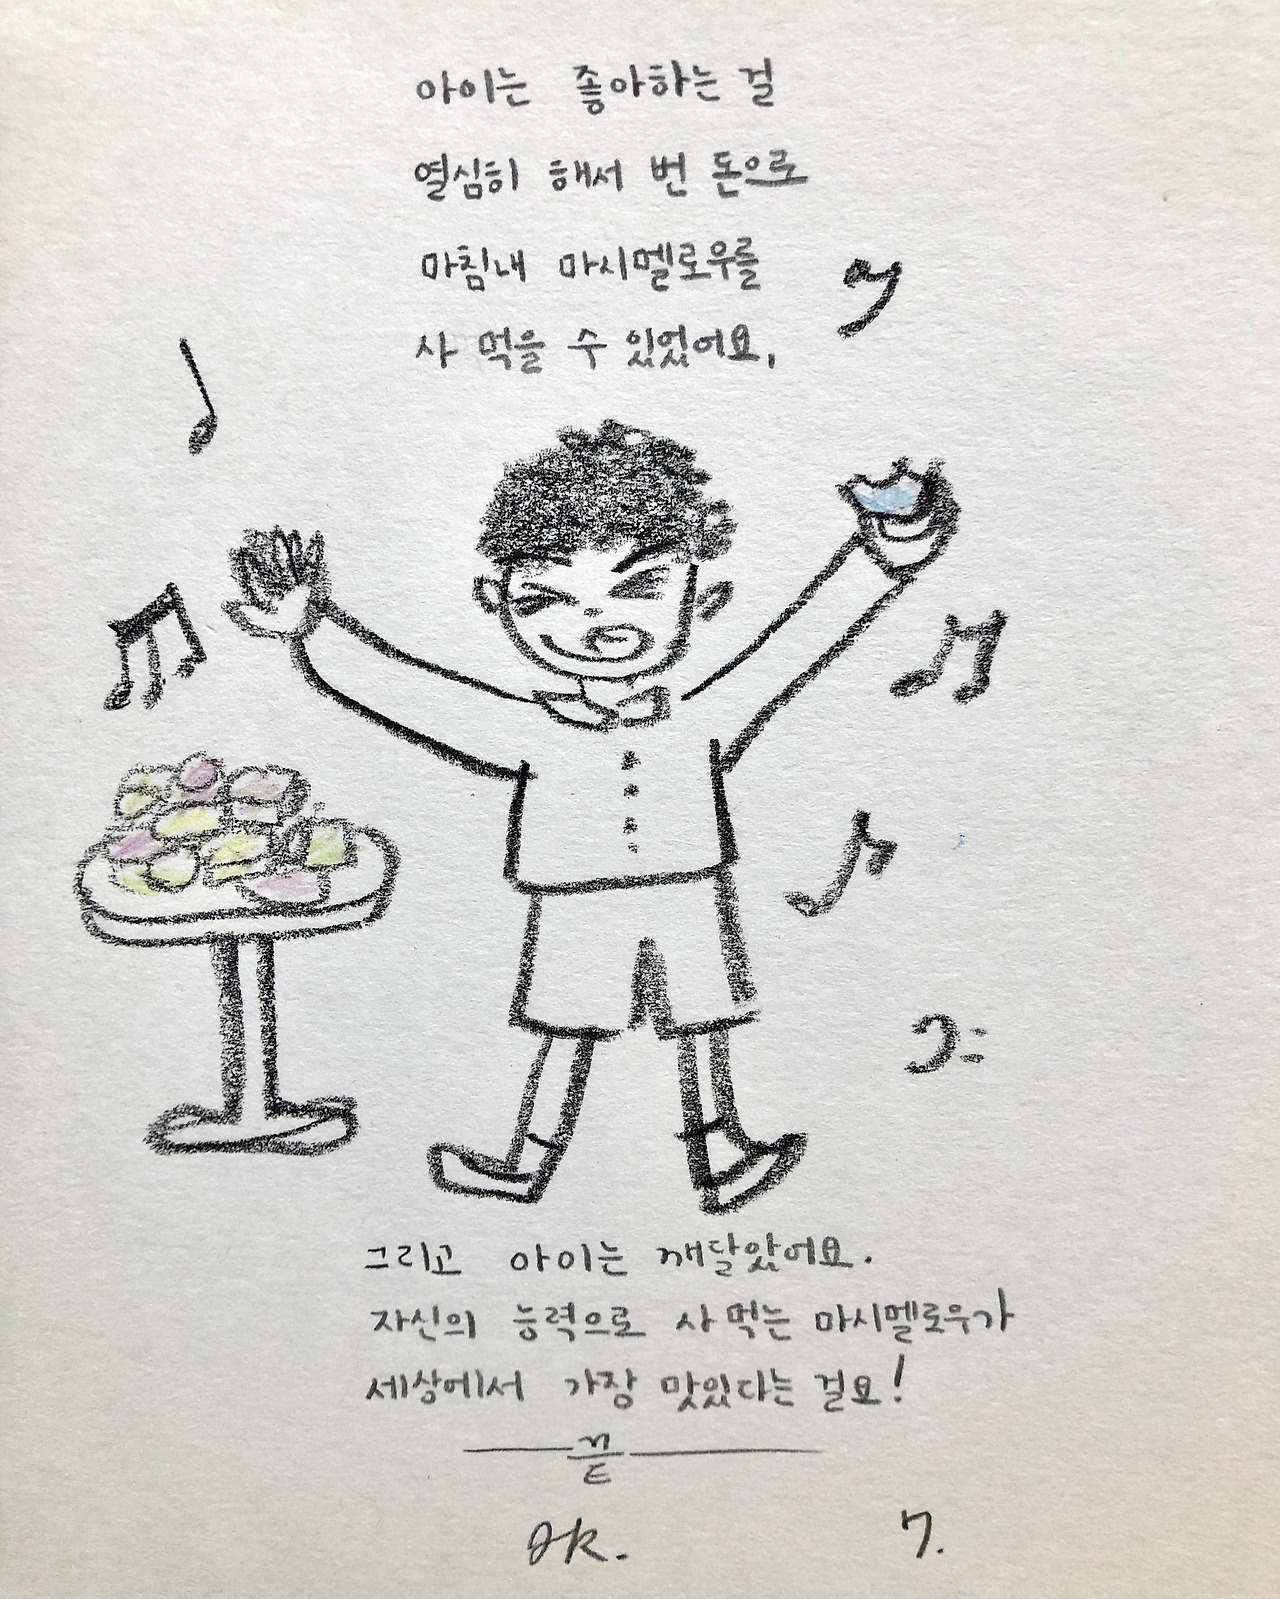 아이는 좋아하는 걸
열심히 해서 번 돈으로
마침내 마시멜로우를
사 먹을 수 있었어요,
그리고 아이는 깨달았어요.
자신의 능력으로 사 먹는 마시멜로우가
세상에서 가장 맛있다는 걸요!
끝
OK. 7.